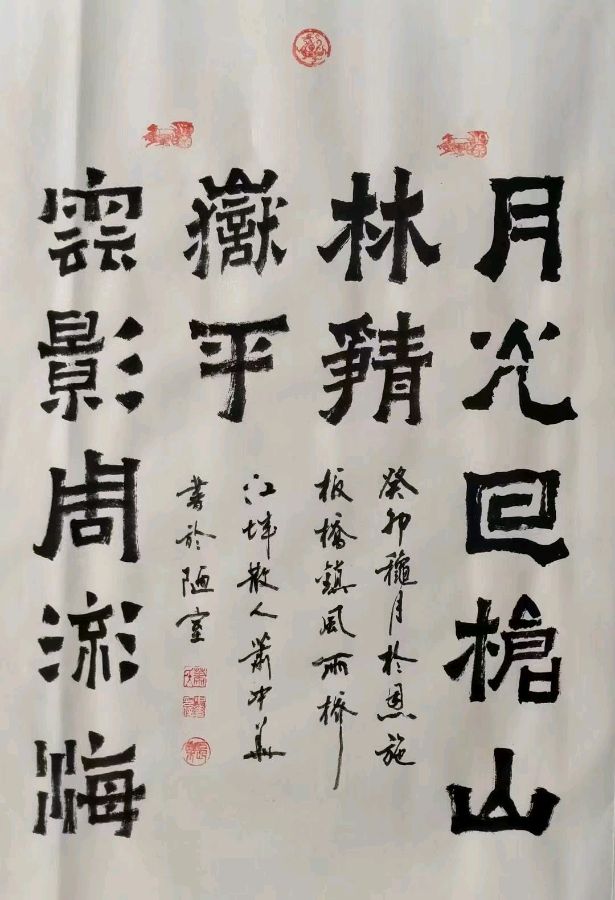 月光回槍山
林靜
雲影周流海
嶽平
癸卯穐月於恩施
板橋鎮風雨橋
江 散人蕭
書於陋室